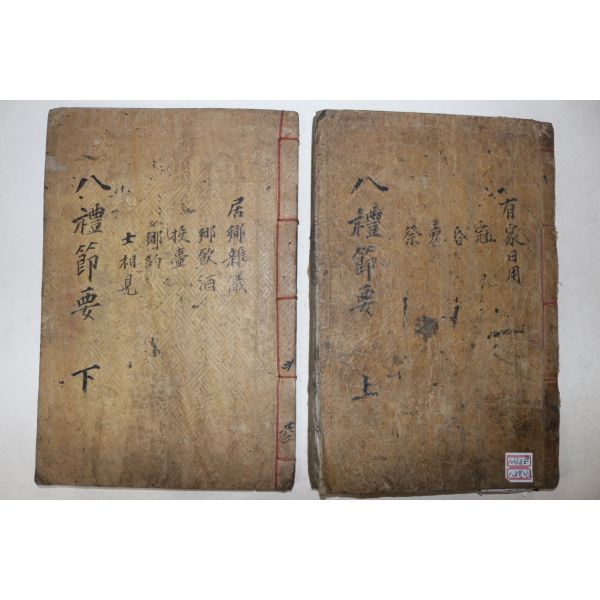 有家日用
冠
昏
喪
祭
八禮節要 上
居鄉雜儀
鄉飲酒
投壺
鄉約
士相見
八禮節要 下